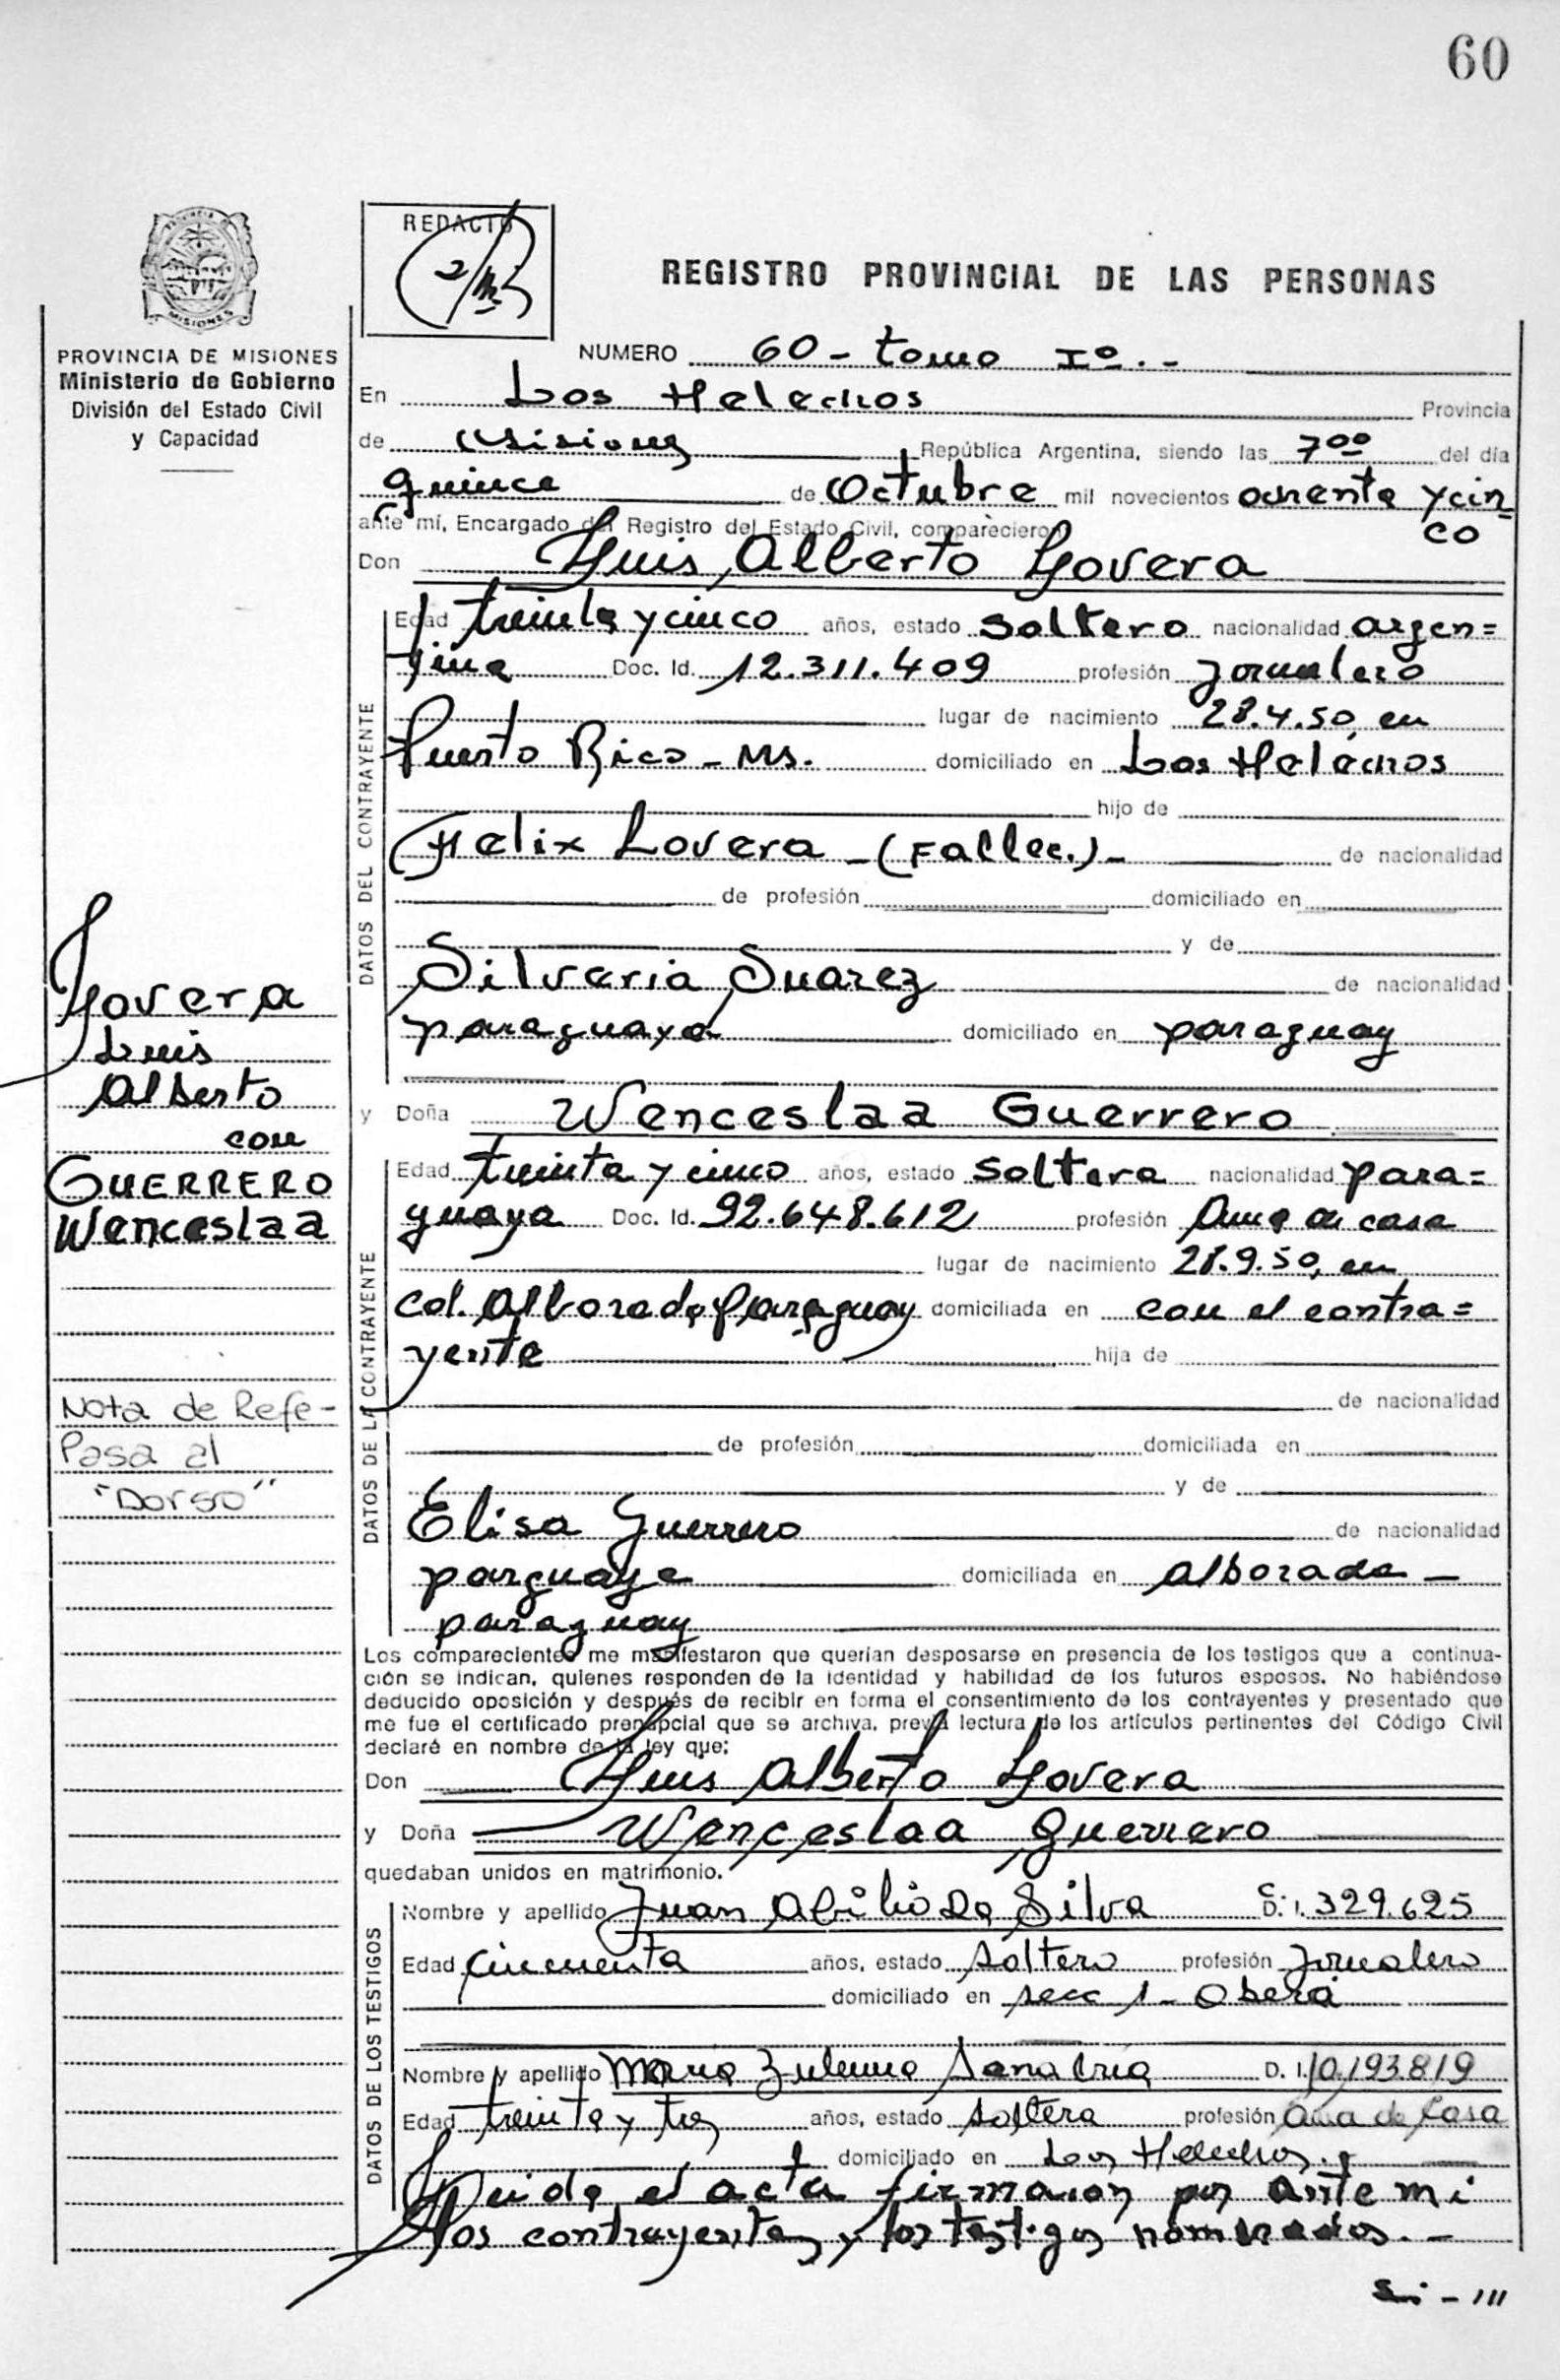 60
REDACTO
REGISTRO PROVINCIAL DE LAS PERSONAS
MISIONES
PROVINCIA DE MISIONES
Ministerio de Gobierno
División del Estado Civil
y Capacidad
NUMERO 60 - tomo Iº. -
En Los Helechos Provincia
de Misiones República Argentina, siendo las 7 00 del día
quince de Octubre mil novecientos ochenta y cin=
co
ante mí, Encargado del Registro del Estado Civil, comparecieron
Don Luis Alberto Lovera
DATOS DEL CONTRAYENTE
Edad treinta y cinco años, estado Soltero nacionalidad argen=
tina Doc. Id. 12.311.409 profesión Jornalero
lugar de nacimiento 28.4.50, en
Puerto Rico - Ms. domiciliado en Los Helechos
hijo de
Felix Lovera - (Fallec.) - de nacionalidad
de profesión domiciliado en
y de
Silveria Suarez de nacionalidad
paraguaya domiciliado en paraguay
Lovera
Luis
Alberto
con
GUERRERO
Wenceslaa
y Doña Wenceslaa Guerrero
DATOS DE LA CONTRAYENTE
Edad treinta y cinco años, estado Soltera nacionalidad para=
guaya Doc. Id. 92.648.612 profesión Ama de casa
lugar de nacimiento 28.9.50, en
Col. Alborada, Paraguay domiciliada en con el contra=
yente hija de
de nacionalidad
de profesión domiciliada en
y de
Elisa Guerrero de nacionalidad
parguaya domiciliada en Alborada -
paraguay
Nota de Refe-
Pasa al
"Dorso"
Los comparecientes me manifestaron que querían desposarse en presencia de los testigos que a continua-
ción se indican, quienes responden de la identidad y habilidad de los futuros esposos. No habiéndose
deducido oposición y después de recibir en forma el consentimiento de los contrayentes y presentado que
me fue el certificado prenupcial que se archiva, previa lectura de los artículos pertinentes del Código Civil
declaré en nombre de la ley que:
Don Luis Alberto Lovera
y Doña Wenceslaa Guerrero
quedaban unidos en matrimonio.
DATOS DE LOS TESTIGOS
Nombre y apellido Juan Abilio Da Silva D. I. 329.625
Edad cincuenta años, estado soltero profesión Jornalero
domiciliado en secc 1 - Oberá
Nombre y apellido Maria Zulema Sanabria D. I. 10.193.819
Edad treinta y tres años, estado soltera profesión ama de Casa
domiciliado en Los Helechos.
Leida el acta firmaron por ante mi
los contrayentes y los testigos nombrados. -